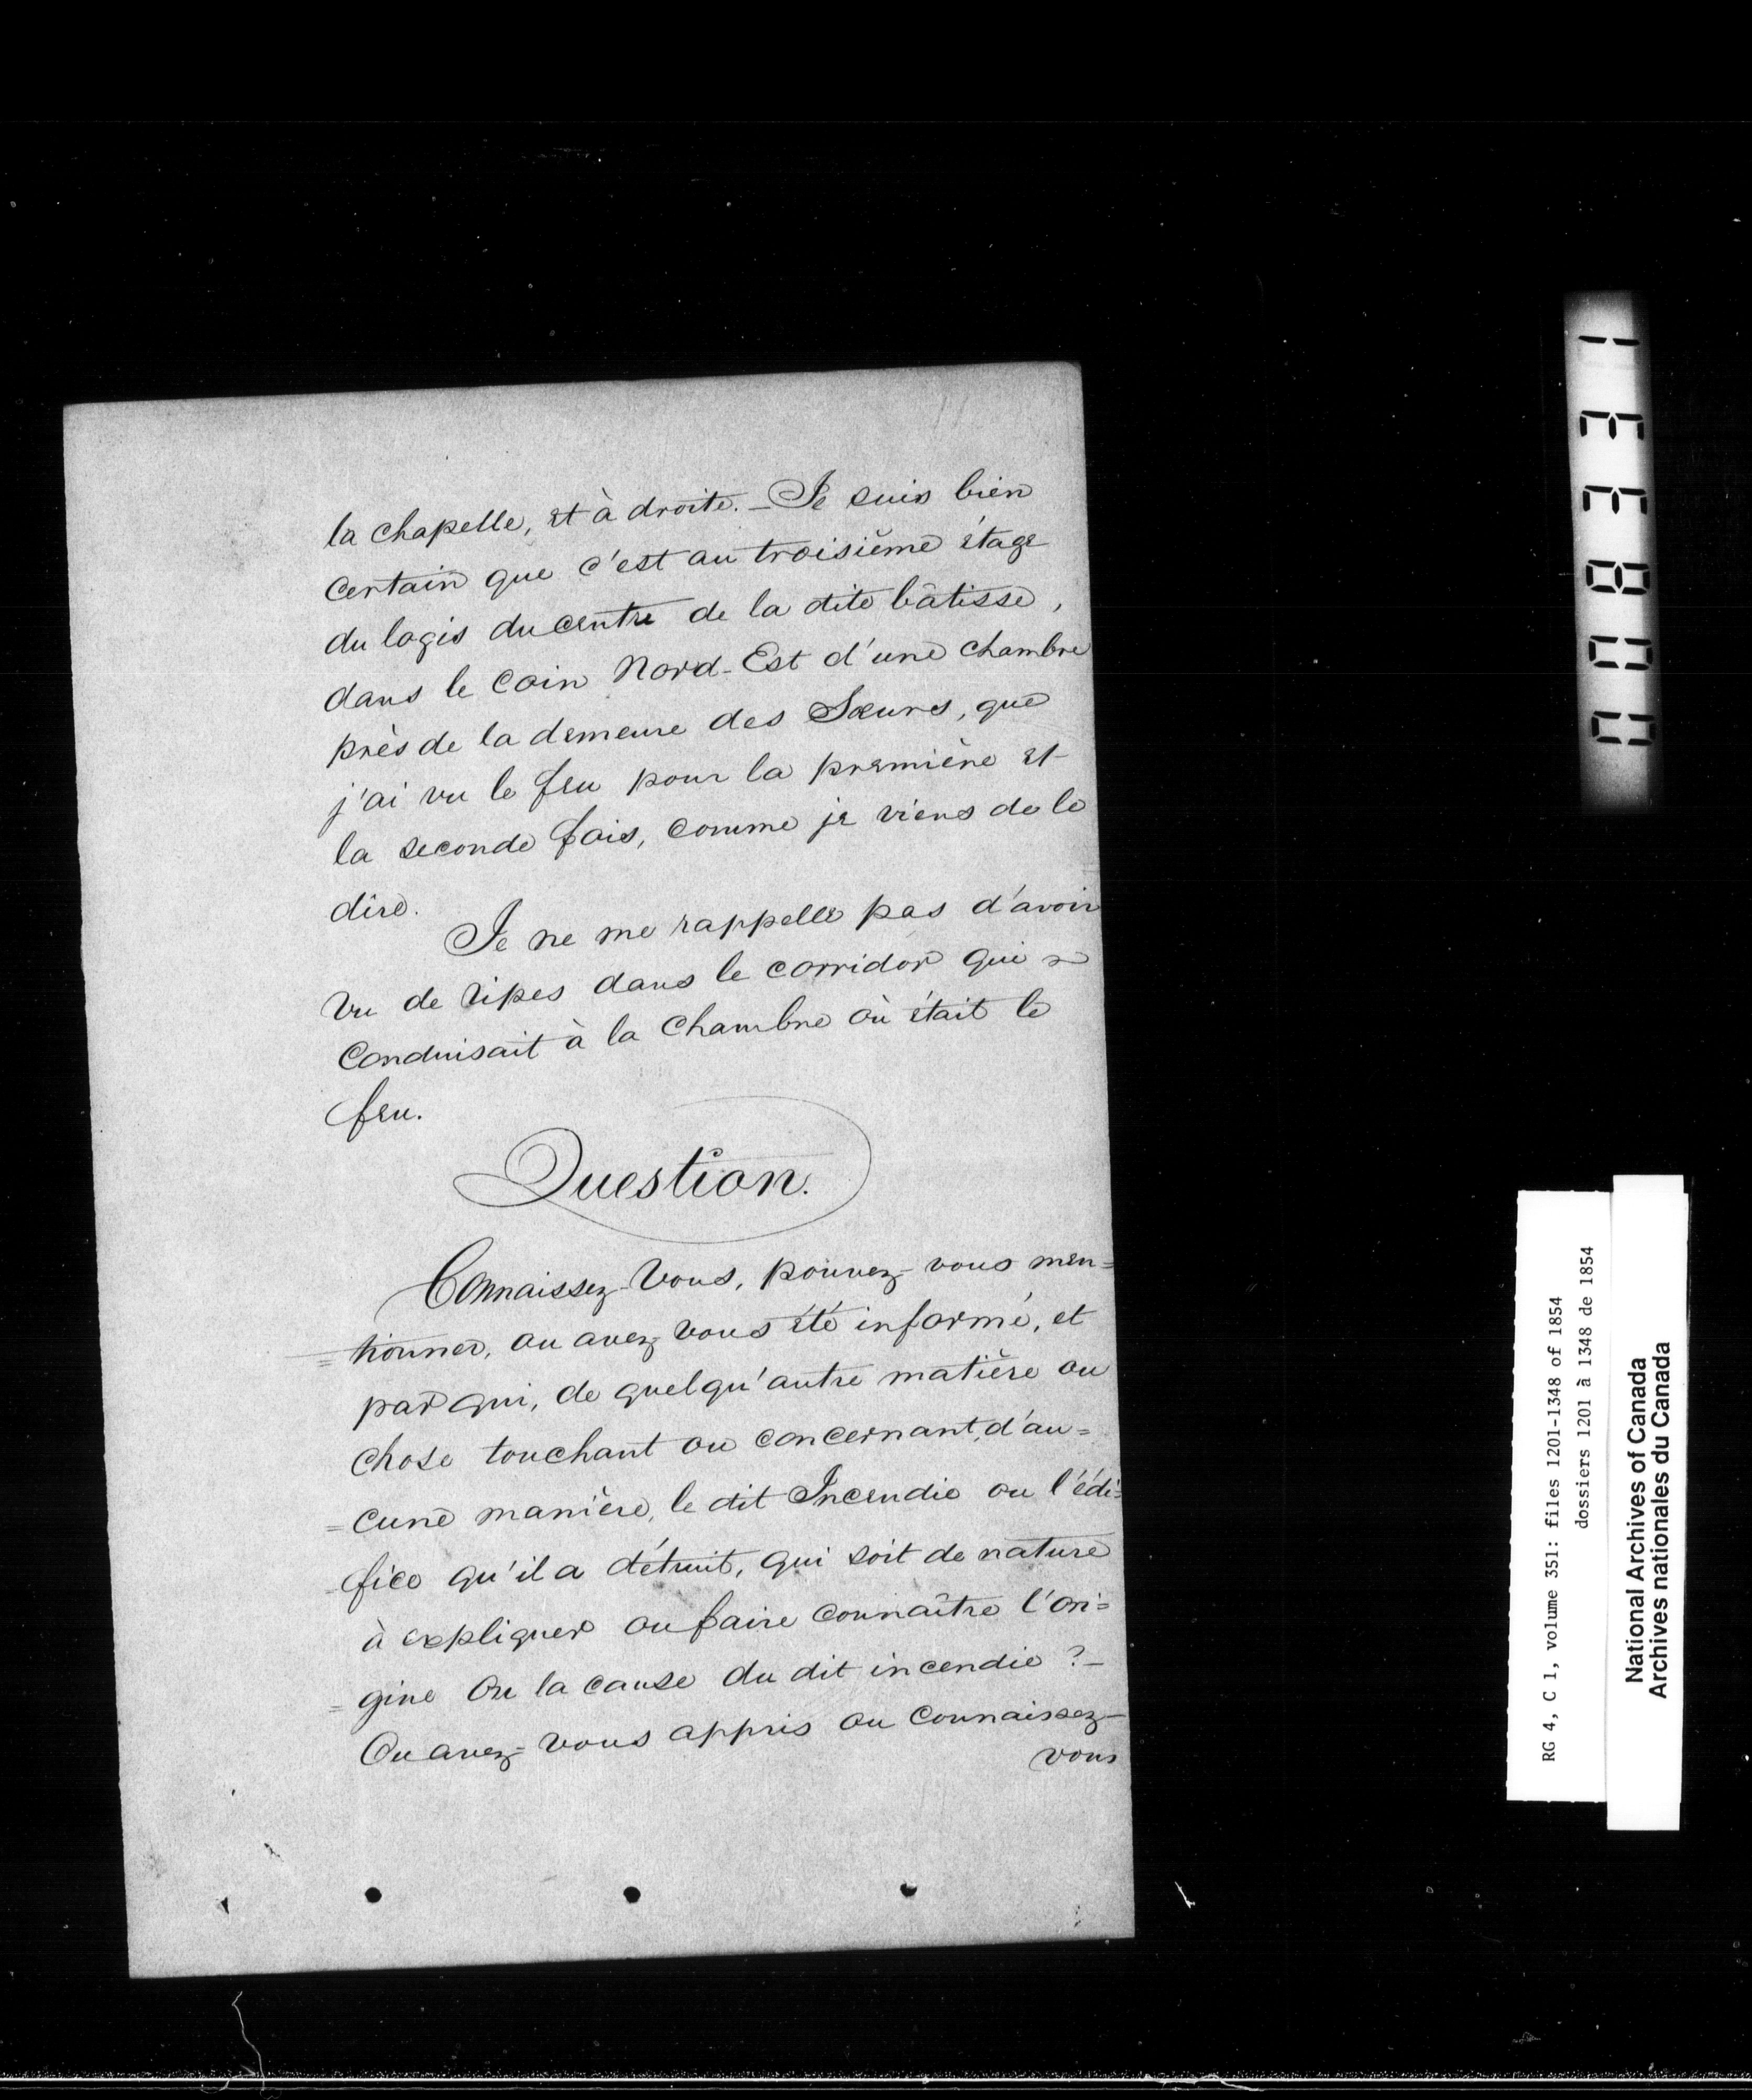 11
la chapelle, et à droite. _ Je suis bien
certain que c'est au troisième étage
du logis du centre de la dite bâtisse,
dans le coin Nord-Est d'une chambre
près de la demeure des Sœurs, que
j'ai vu le feu pour la première et
la seconde fois, comme je viens de le
dire.
Je ne me rappelle pas d'avoir
vu de ripes dans le corridor qui
conduisait à la chambre où était le
feu.
Question.
Connaissez-vous, pouvez-vous men=
=tionner, ou avez vous été informé, et
par qui, de quelqu'autre matière ou
chose touchant ou concernant, d'au=
=cune manière, le dit Incendie ou l'édi=
-fice qu'il a détruit, qui soit de nature
à expliquer ou faire connaître l'ori=
=gine ou la cause du dit incendie ? _
Ou avez-vous appris ou connaissez-
vous
RG 4, C 1, volume 351: files 1201-1348 of 1854
dossiers 1201 à 1348 de 1854
National Archives of Canada
Archives nationales du Canada